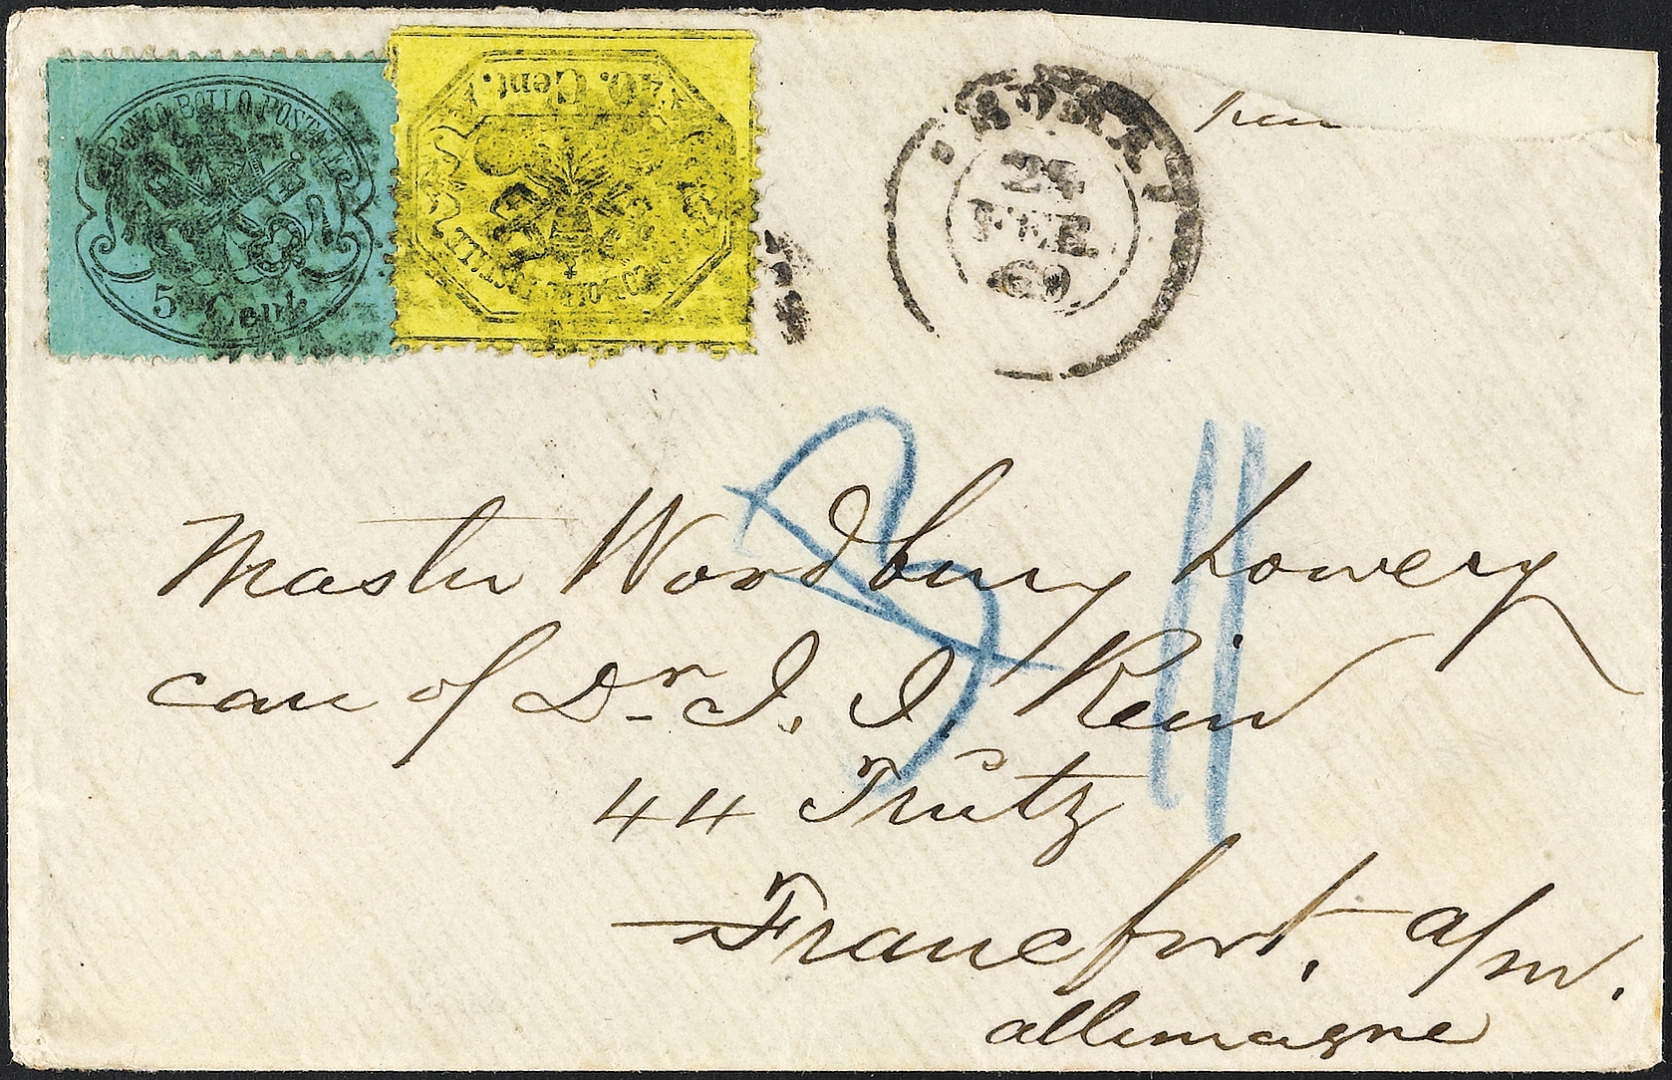 FRANCO BOLLO POSTALE
5 Cent.
40. Cent.
FRANCO BOLLO POSTALE
ROMA
24
FEB
69
Master Woodbury Lowery
care of Dr. J. J. Rein
44 Trütz
Francfort, a/m.
allemagne